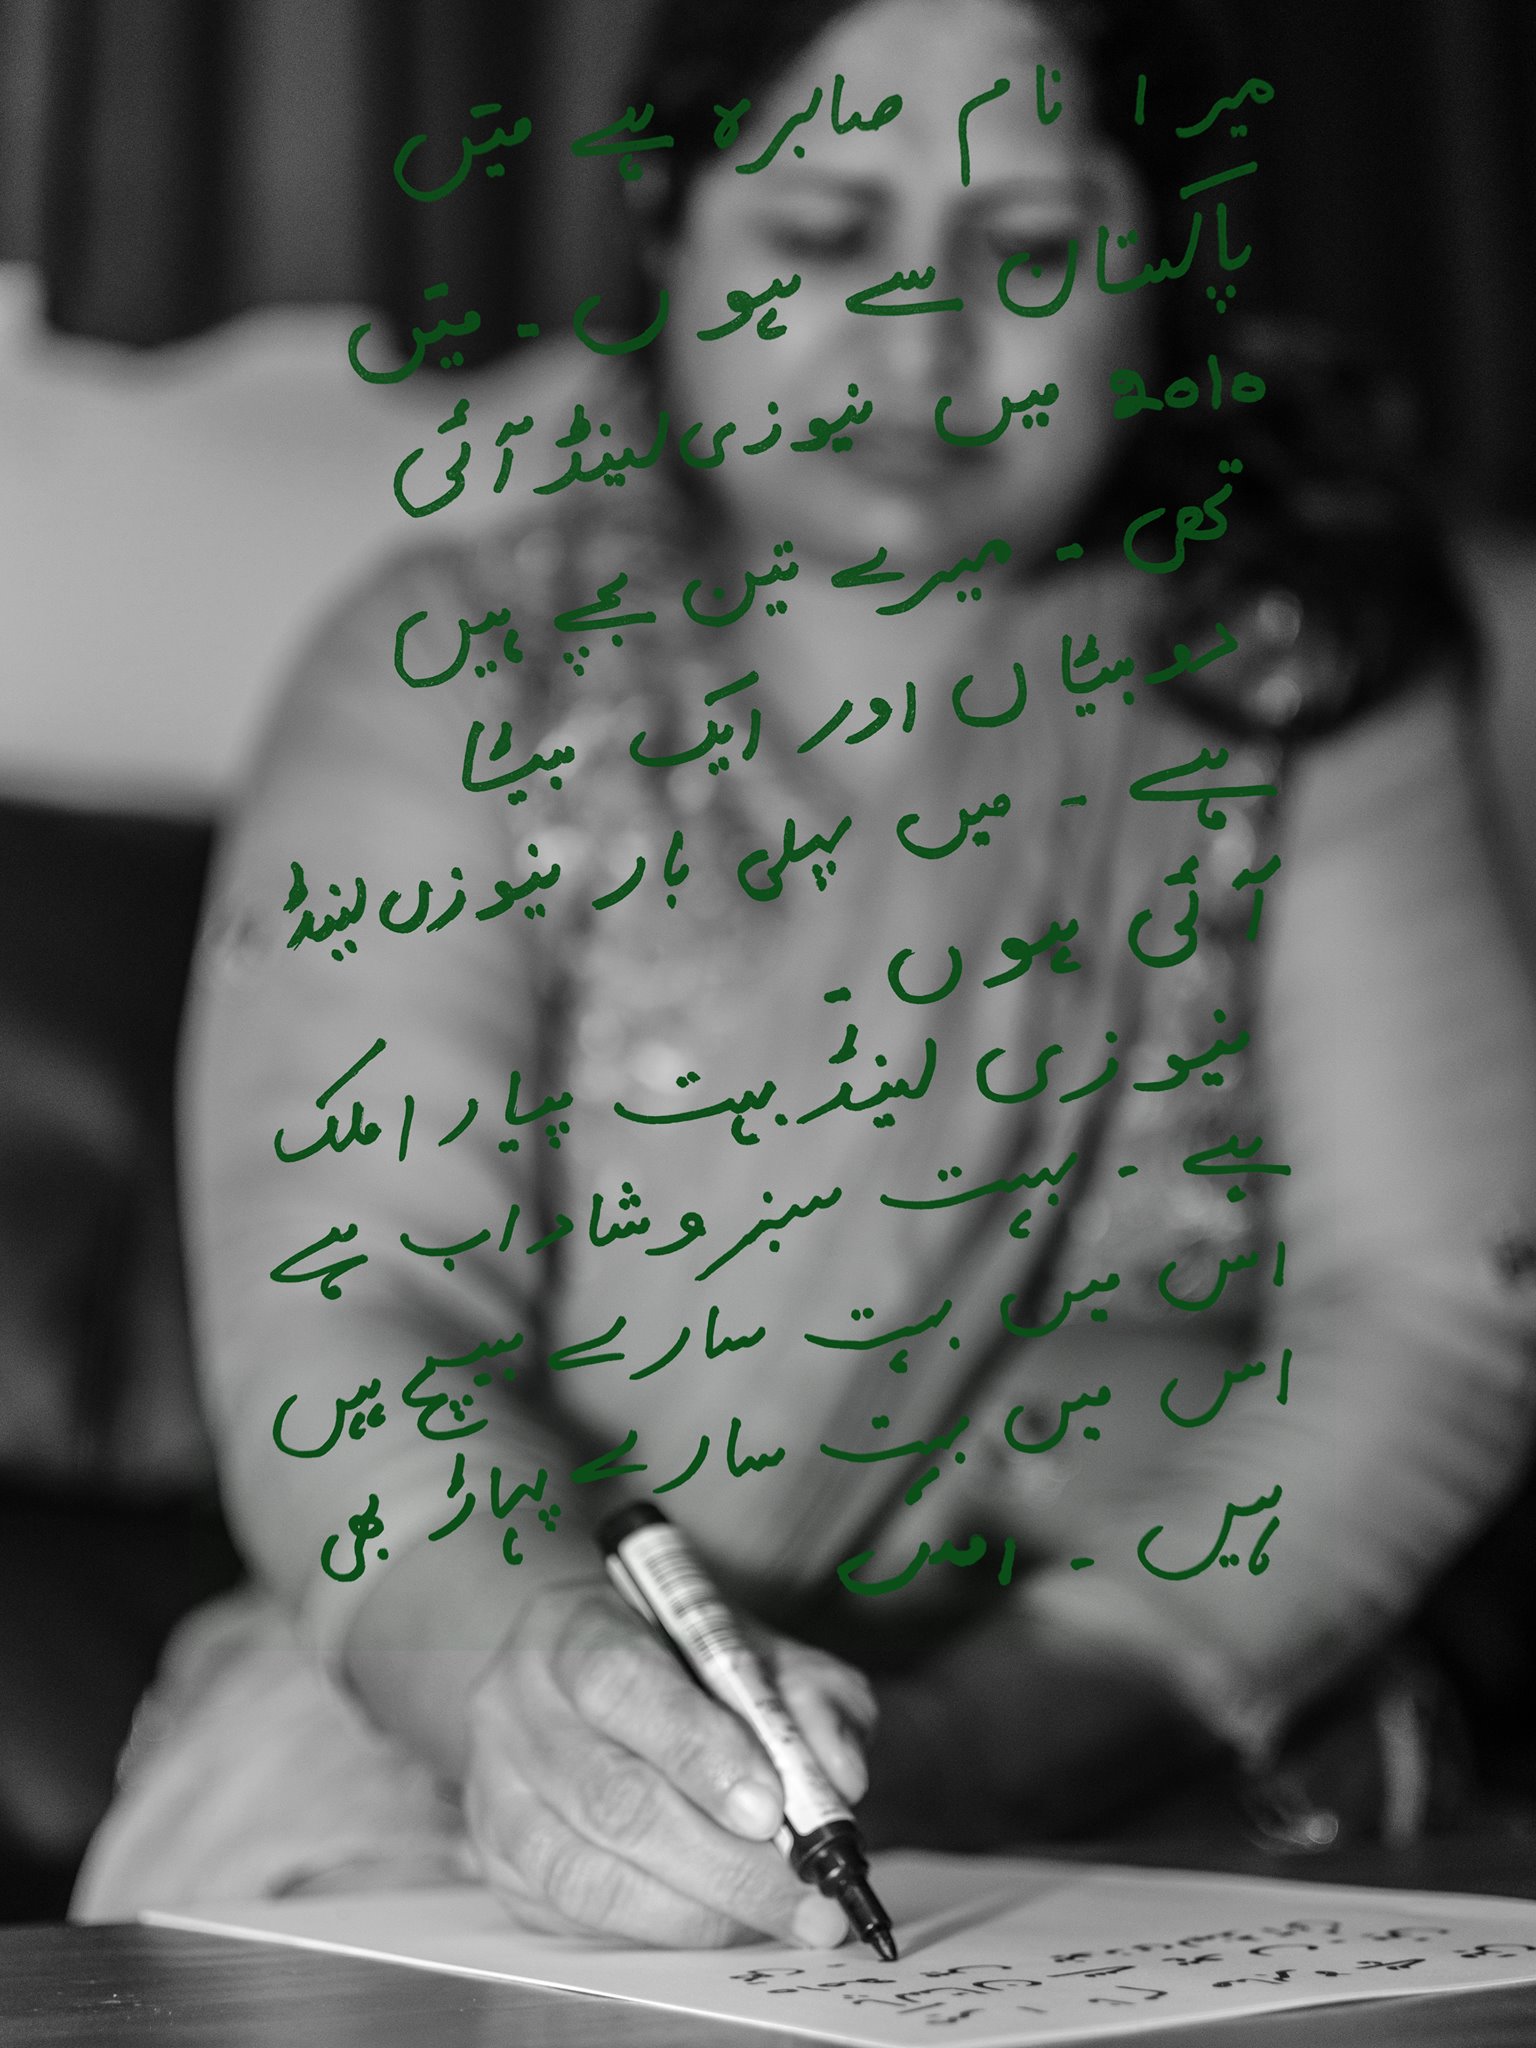 میرا نام صابرہ ہے میں
پاکستان سے ہوں ۔ میں
2010 میں نیوزی لینڈ آئی
تھی ۔ میرے تین بچے ہیں
دو بیٹیاں اور ایک بیٹا
ہے ۔ میں پہلی بار نیوزی لینڈ
آئی ہوں ۔
نیوزی لینڈ بہت پیارا ملک
ہے ۔ بہت سبز و شاداب ہے
اس میں بہت سارے بیچ ہیں
اس میں بہت سارے پہاڑ بھی
ہیں ۔